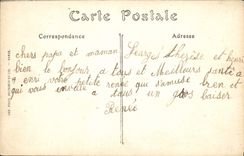 Carte Postale
Correspondance
Adresse
chers papa et maman Georges thérèse et henri
bien le bonjour a tous et Meilleurs santé a
henri votre petite rené qui s'amuse bien et
qui vous envoie a tous un gros baiser
René